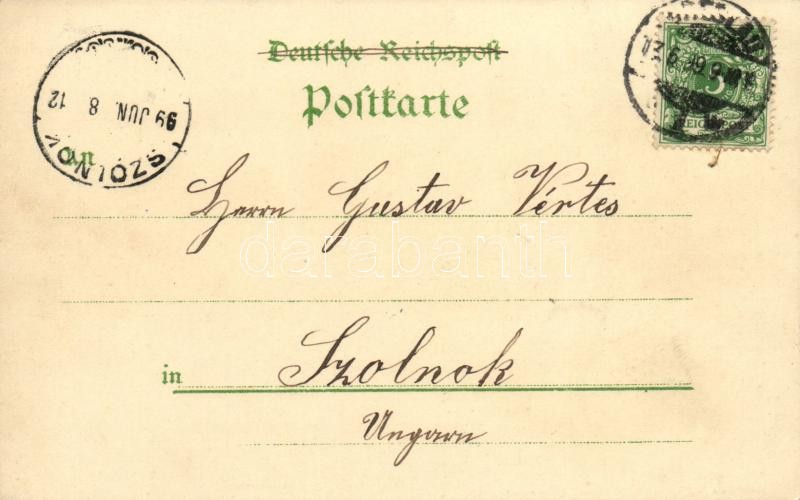 Deutsche Reichspost
Postkarte
SZOLNOK
99 JUN. 8 12
an
Herrn Gustav Vértes
darabanth
in Szolnok
Ungarn
5
REICHSPOST